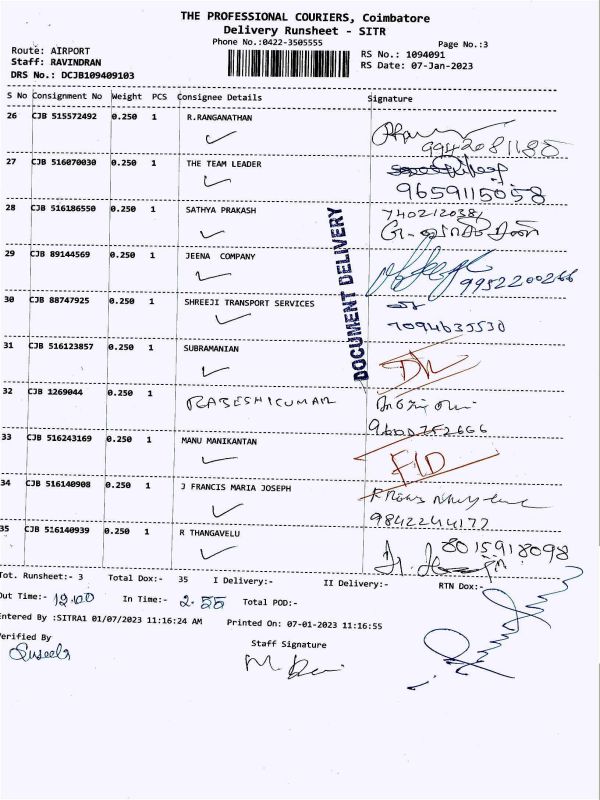 THE PROFESSIONAL COURIERS, Coimbatore
Delivery Runsheet - SITR
Phone No.:0422-3505555
Page No.:3
Route: AIRPORT
RS No.: 1094091
Staff: RAVINDRAN
RS Date: 07-Jan-2023
DRS No.: DCJB109409103
S No Consignment No Weight PCS Consignee Details Signature
26 CJB 515572492 0.250 1 R.RANGANATHAN
9942081185
27 CJB 516070030 0.250 1 THE TEAM LEADER
9659115058
28 CJB 516186550 0.250 1 SATHYA PRAKASH 7402120381
29 CJB 89144569 0.250 1 JEENA COMPANY
9952200266
30 CJB 88747925 0.250 1 SHREEJI TRANSPORT SERVICES
7094633530
DOCUMENT DELIVERY
31 CJB 516123857 0.250 1 SUBRAMANIAN
DL
32 CJB 1269044 0.250 1 RAJESHKUMAR
33 CJB 516243169 0.250 1 MANU MANIKANTAN
FID
34 CJB 516140908 0.250 1 J FRANCIS MARIA JOSEPH
9842244177
35 CJB 516140939 0.250 1 R THANGAVELU
8015918098
Tot. Runsheet:- 3 Total Dox:- 35 I Delivery:- II Delivery:- RTN Dox:-
Out Time:- 12.00 In Time:- 2.55 Total POD:-
Entered By :SITRA1 01/07/2023 11:16:24 AM Printed On: 07-01-2023 11:16:55
Verified By Staff Signature
Suseela